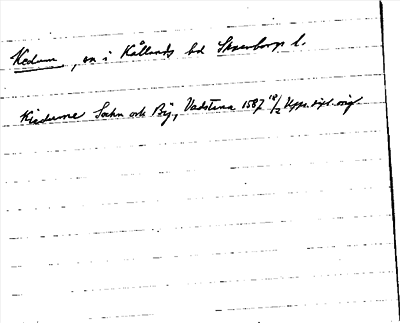 Kedum, sn i Kållands hd Skaraborgs l.
Kiedume Sochn och By, Vadstena 1587 18/2 Upps. dipl. orig.